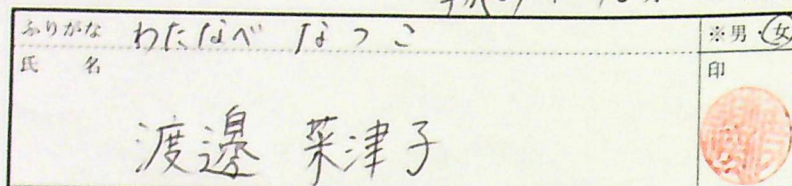 ふりがな わたなべ なつこ ※男・女
氏名 渡邊 菜津子 印